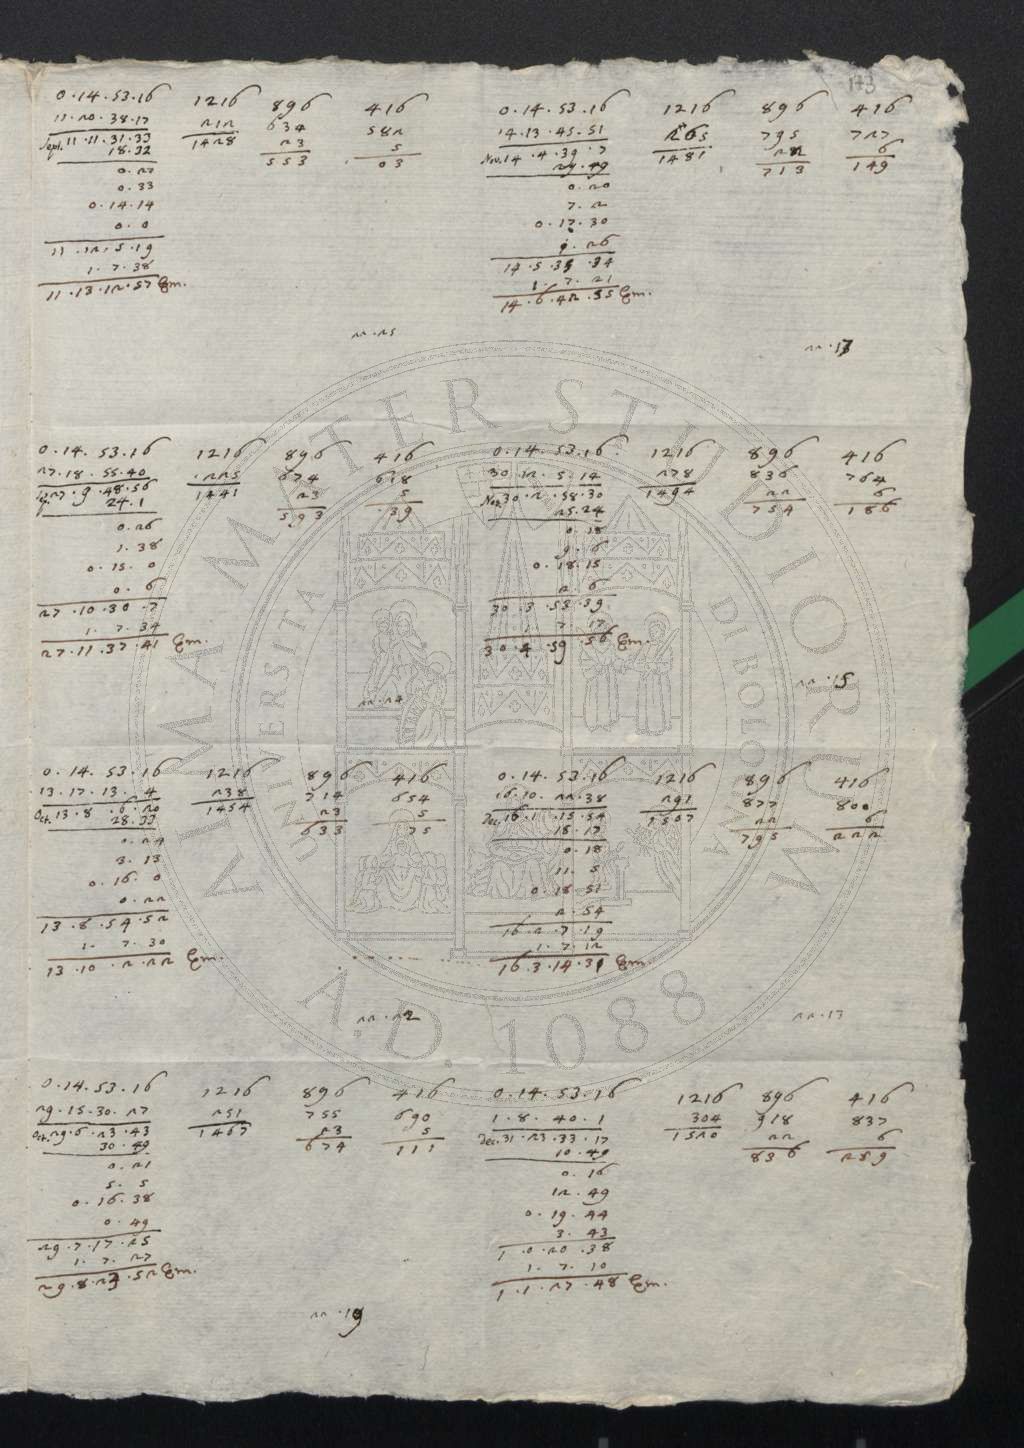 173
0.14.53.16 1216 896 416
11.20.38.17 212 634 582
Sept. 11.11.31.33 1428 23 5
18.32 553 03
0.27
0.33
0.14.14
0.0
11.12.5.19
1.7.38
11.13.12.57 Em.
22.25
0.14.53.16 1216 896 416
14.13.45.51 265 795 727
Nov. 14.4.39.7 1481 22 6
29.49 713 149
0.20
7.2
0.17.30
.26
14.5.35.34
1.7.21
14.6.42.55 Em.
22.13
0.14.53.16 1216 896 416
27.18.55.40 225 674 618
27.9.48.56 1441 23 5
24.1 593 39
0.26
1.38
0.15.0
0.6
27.10.30.7
1.7.34
27.11.37.41 Em.
22.24
0.14.53.16 1216 896 416
30.12.5.14 278 836 764
Nov. 30.2.58.30 1494 22 6
25.24 754 186
0.18
9.6
0.18.15
2.6
30.3.53.39
1.7.17
30.4.59.56 Em.
22.15
0.14.53.16 1216 896 416
13.17.13.4 238 714 654
Oct. 13.8.6.20 1454 23 5
28.33 633 75
0.24
3.13
0.16.0
0.22
13.8.54.52
1.7.30
13.10.2.22 Em.
22.22
0.14.53.16 1216 896 416
16.10.22.38 291 877 800
Dec. 16.1.15.54 1507 22 6
18.17 795 222
0.18
11.5
0.18.51
2.54
16.2.7.19
1.7.12
16.3.14.31 Em.
22.13
0.14.53.16 1216 896 416
29.15.30.27 251 755 690
Oct. 29.6.23.43 1467 23 5
30.49 674 111
0.21
5.5
0.16.38
0.49
29.7.17.25
1.7.27
29.8.24.52 Em.
22.19
0.14.53.16 1216 896 416
1.8.40.1 304 918 837
Dec. 31.23.33.17 1520 22 6
10.49 836 259
0.16
12.49
0.19.44
3.43
1.0.20.38
1.7.10
1.1.27.48 Em.
ALMA MATER STUDIORUM
UNIVERSITÀ DI BOLOGNA
A.D. 1088